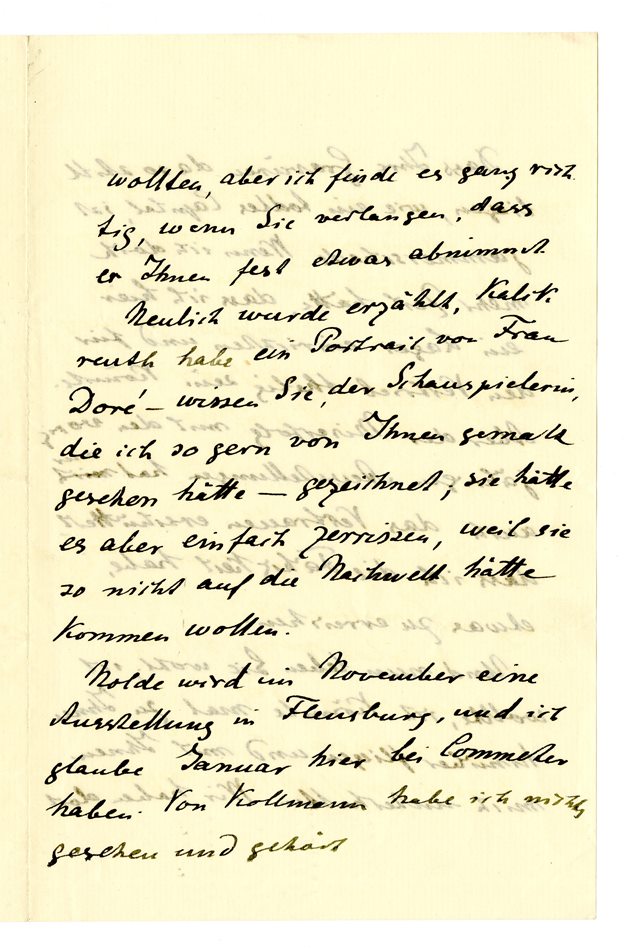 wollten, aber ich finde es ganz rich
tig, wenn Sie verlangen, dass
er Ihnen fest etwas abnimmt.
Neulich wurde erzählt, Kalck
reuth habe ein Portrait von Frau
Doré – wissen Sie, der Schauspielerin,
die ich so gern von Ihnen gemalt
gesehen hätte – gezeichnet; sie hätte
es aber einfach zerrissen, weil sie
so nicht auf die Nachwelt hätte
kommen wollen.
Nolde wird im November eine
Ausstellung in Flensburg, und ich
glaube Januar hier bei Commeter
haben. Von Kollmann habe ich nichts
gesehen und gehört